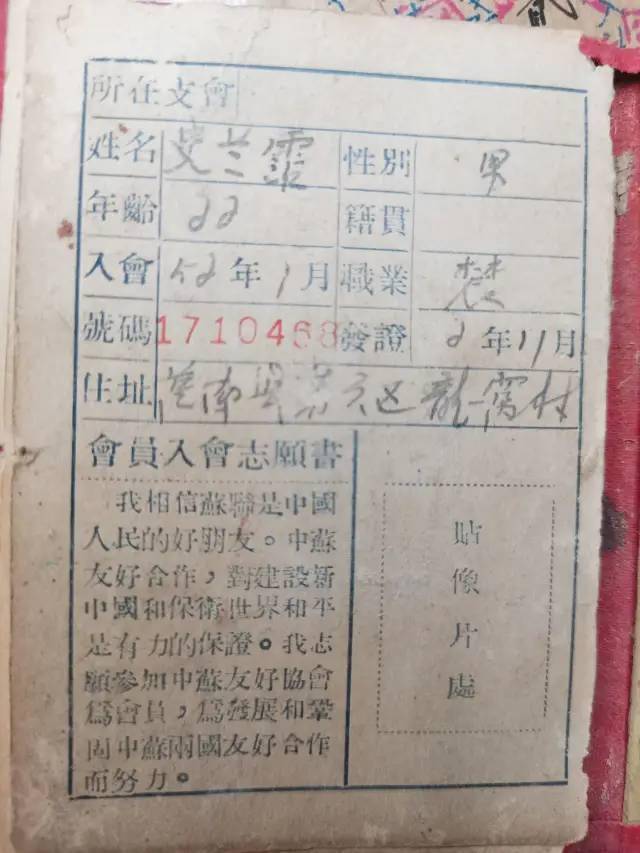 所在支會
姓名 史兰霞 性別 男
年齡 22 籍貫
入會 52年1月 職業 农
號碼 1710468 發證 2年11月
住址 莒南縣 六区 龍窩村
會員入會志願書
我相信蘇聯是中國
人民的好朋友。中蘇
友好合作，對建設新
中國和保衛世界和平
是有力的保證。我志
願參加中蘇友好協會
爲會員，爲發展和鞏
固中蘇兩國友好合作
而努力。
貼像片處